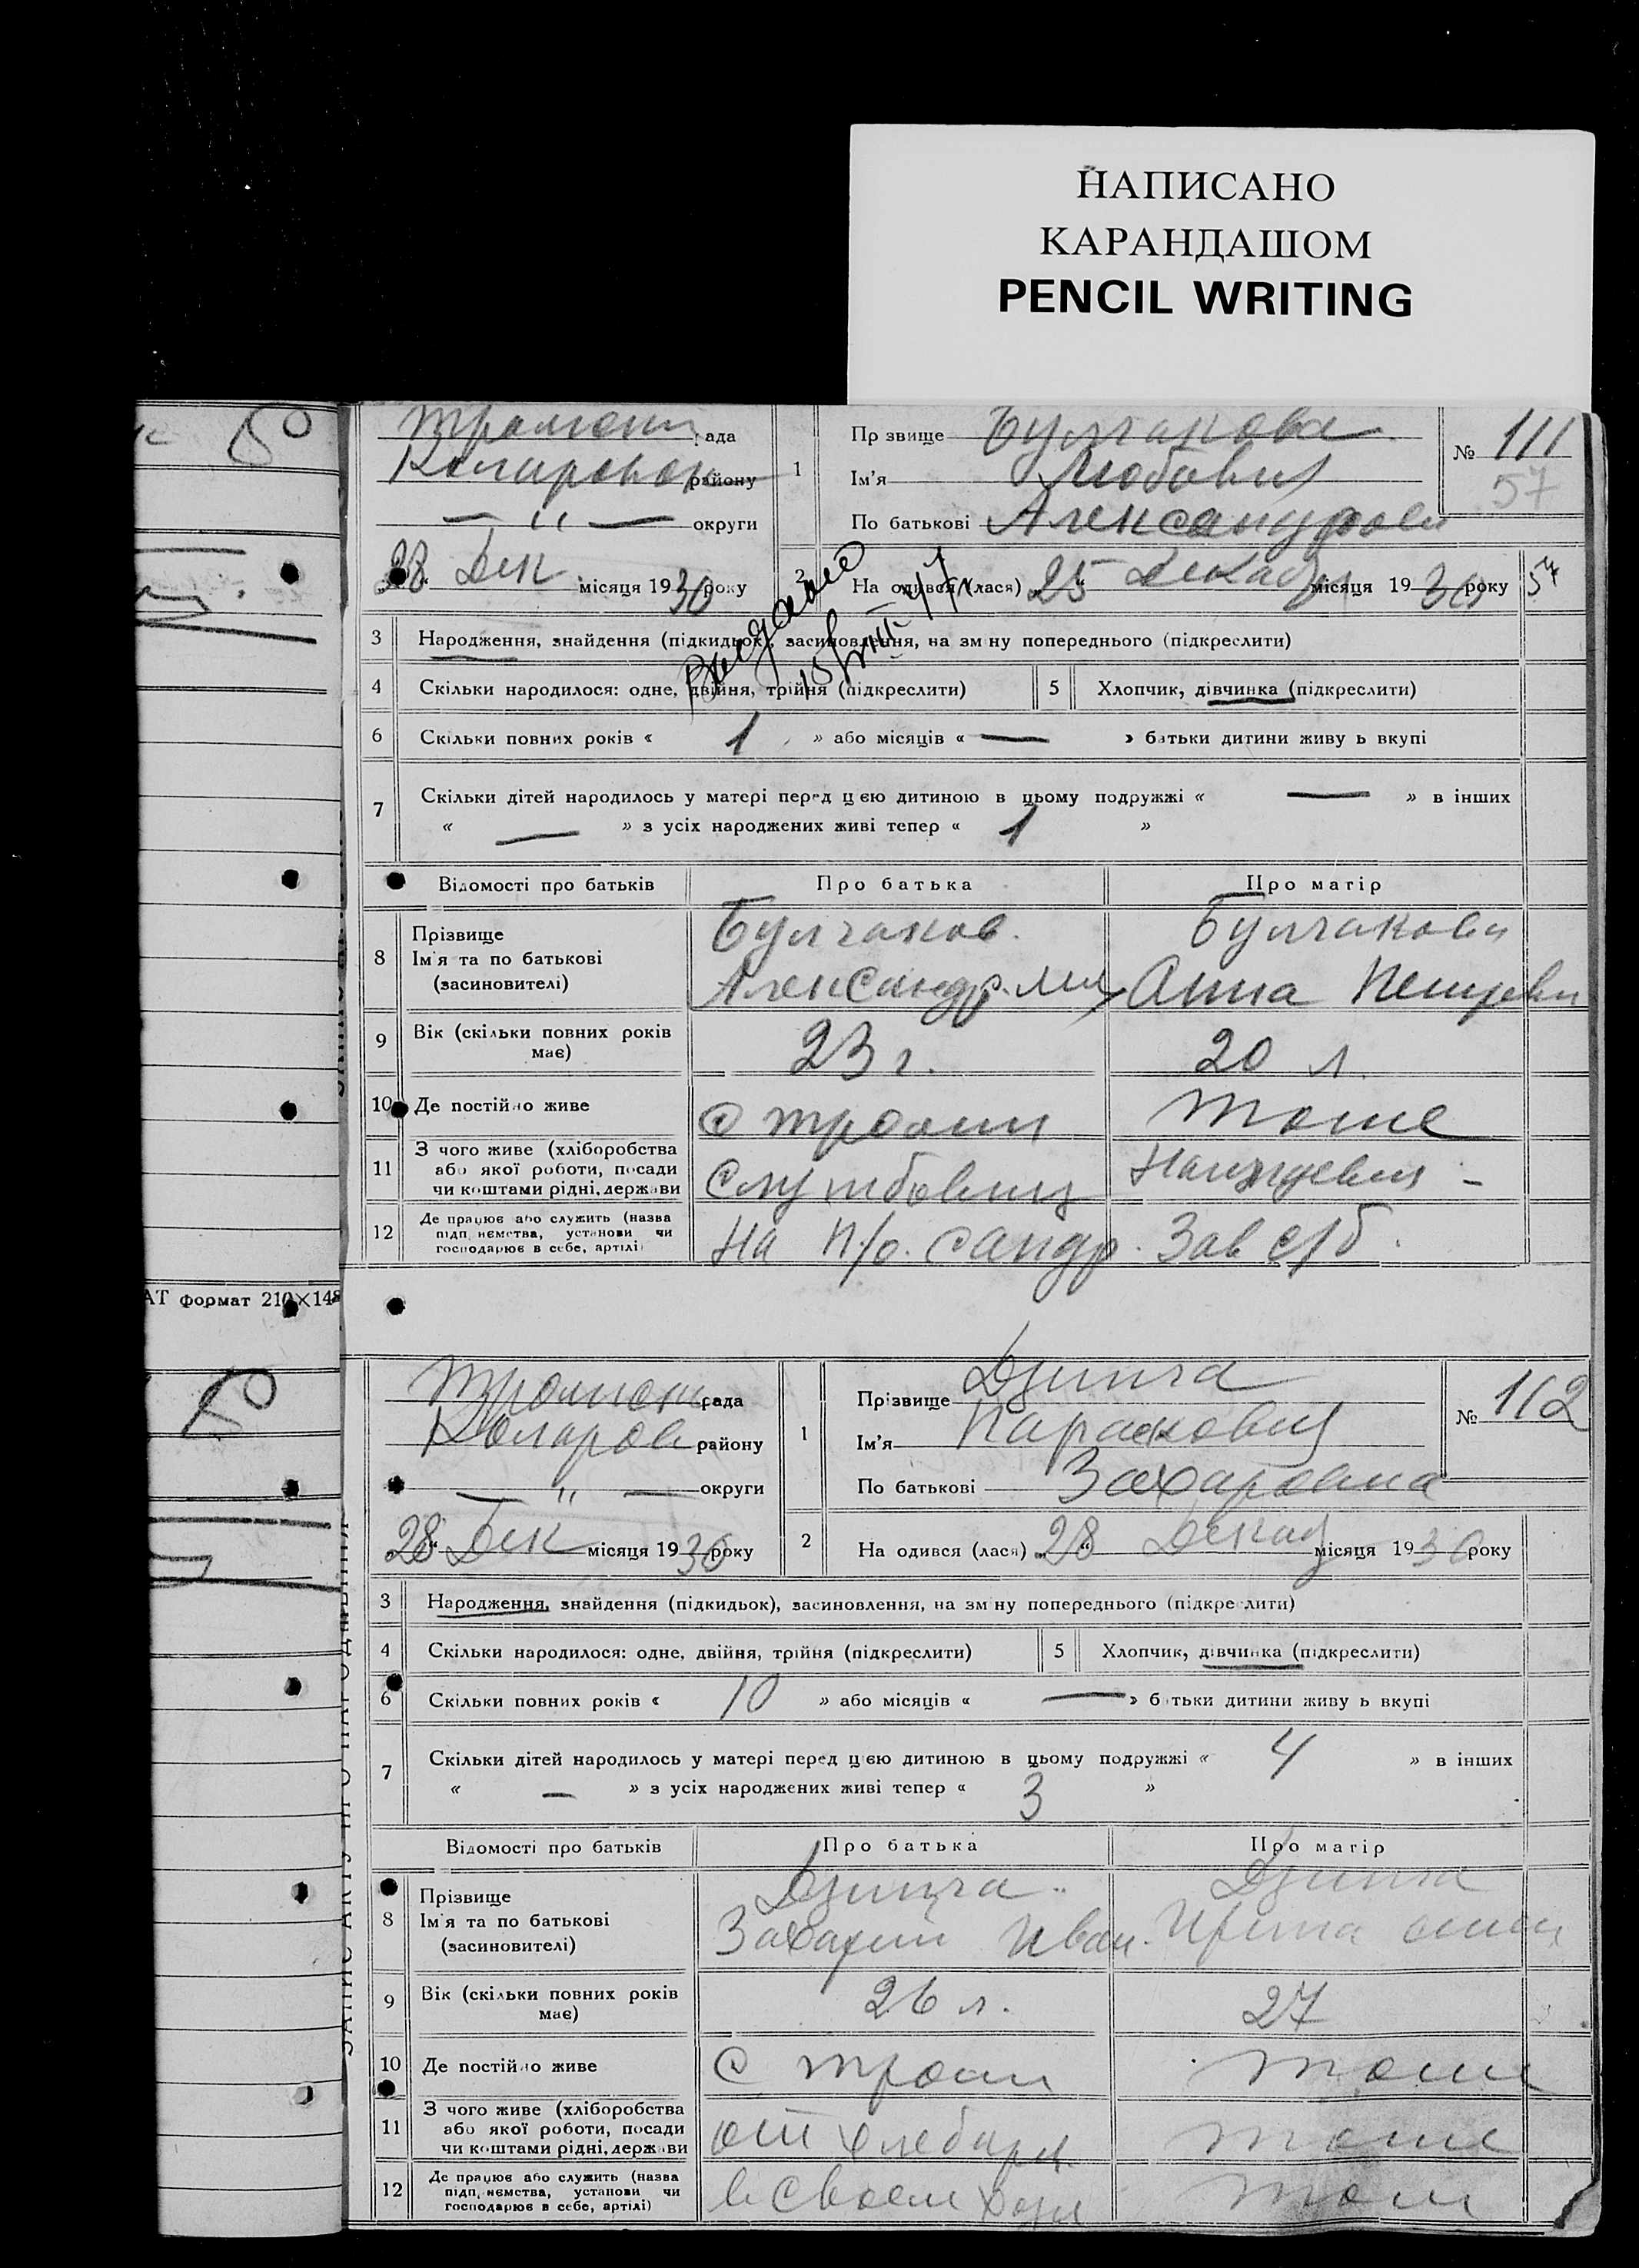 НАПИСАНО
КАРАНДАШОМ
PENCIL WRITING
50
рада
району
— " — округи
28 Дек місяця 1930 року
1
Прізвище Булгакова
Ім'я Любовья
По батькові Александровн
№ 111
57
2
На одився (лася) 25 Декабр місяця 1930 року
57
Выдано
15/VIII-47
3 Народження, знайдення (підкидьок), засиновлення, на зм ну попереднього (підкреслити)
4 Скільки народилося: одне, двійня, трійня (підкреслити) 5 Хлопчик, дівчинка (підкреслити)
6 Скільки повних років « 1 » або місяців « — » батьки дитини живу ь вкупі
7 Скільки дітей народилось у матері перед цією дитиною в цьому подружжі « — » в інших
« — » з усіх народжених живі тепер « 1 »
Відомості про батьків Про батька Про матір
8 Прізвище
Ім'я та по батькові
(засиновителі)
Булгаков. Булгакова
Александр. Анна
9 Вік (скільки повних років
має)
23 г. 20 л.
10 Де постійно живе
с троян тоже
11 З чого живе (хліборобства
або якої роботи, посади
чи коштами рідні, держави
12 Де працює або служить (назва
підп, иємства, установи чи
господарює в себе, артілі)
АТ формат 210×148
50
рада
Коларов району
— " — округи
28 Дек місяця 1930 року
1
Прізвище Дзинга
Ім'я
По батькові Захаровна
№ 112
2
На одився (лася) 28 Декабр місяця 1930 року
3 Народження, знайдення (підкидьок), засиновлення, на зм ну попереднього (підкреслити)
4 Скільки народилося: одне, двійня, трійня (підкреслити) 5 Хлопчик, дівчинка (підкреслити)
6 Скільки повних років « 10 » або місяців « — » батьки дитини живу ь вкупі
7 Скільки дітей народилось у матері перед цією дитиною в цьому подружжі « 4 » в інших
« — » з усіх народжених живі тепер « 3 »
Відомості про батьків Про батька Про матір
8 Прізвище
Ім'я та по батькові
(засиновителі)
Дзинга Дзинга
Захарий Иван. Ирина
9 Вік (скільки повних років
має)
26 л. 27
10 Де постійно живе
с троян тоже
11 З чого живе (хліборобства
або якої роботи, посади
чи коштами рідні, держави
от хлебар тоже
12 Де працює або служить (назва
підп, иємства, установи чи
господарює в себе, артілі)
в своем хозя тож